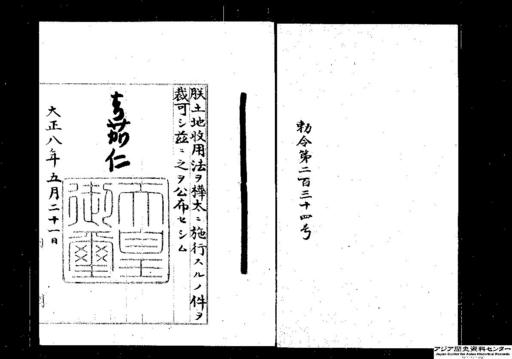 勅令第二百三十四号
朕土地收用法ヲ樺太ニ施行スルノ件ヲ
裁可シ茲ニ之ヲ公布セシム
嘉仁
天皇
御璽
大正八年五月二十一日
アジア歴史資料センター
Japan Center for Asian Historical Records